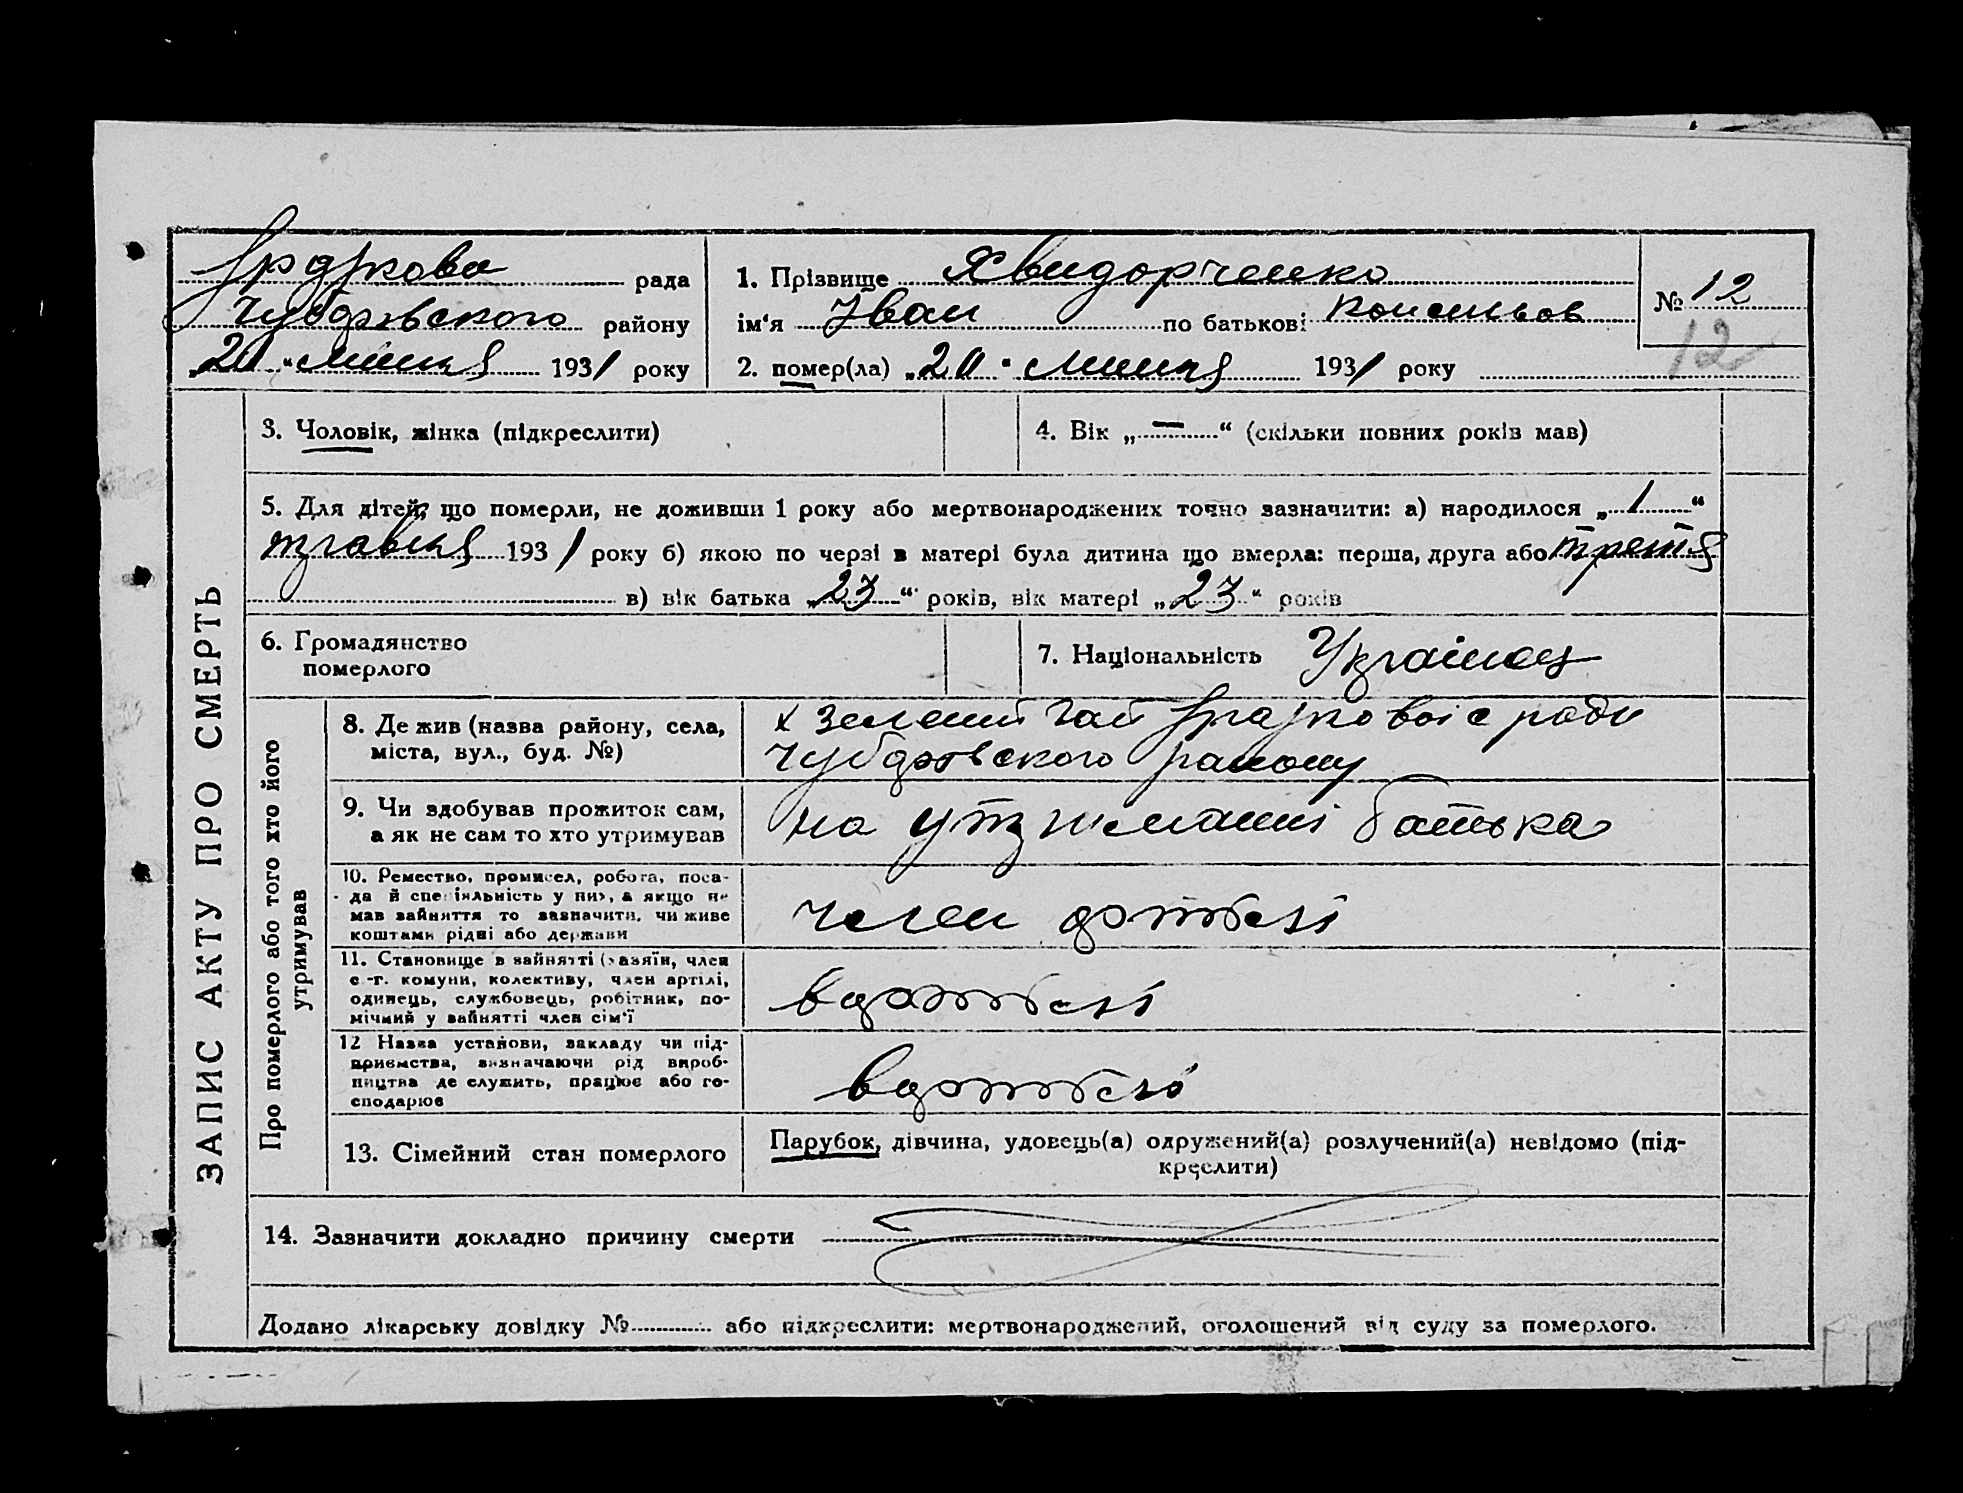 рада
Чубарівського району
"20" липня 1931 року
1. Прізвище Хвидорченко
ім'я Іван по батькові
№ 12
12
2. помер(ла) "20" липня 1931 року
ЗАПИС АКТУ ПРО СМЕРТЬ
3. Чоловік, жінка (підкреслити)
4. Вік „ — “ (скільки повних років мав)
5. Для дітей, що померли, не доживши 1 року або мертвонароджених точно зазначити: а) народилося „ 1 “
травня 1931 року б) якою по черзі в матері була дитина що вмерла: перша, друга або третя
в) вік батька „ 23 “ років, вік матері „ 23 “ років
6. Громадянство
померлого
7. Національність Українец
Про померлого або того хто його
утримував
8. Де жив (назва району, села,
міста, вул., буд. №)
х Зелений Гай ради
Чубарівського району
9. Чи здобував прожиток сам,
а як не сам то хто утримував
на утриманні батька
10. Ремество, промисел, робота, поса-
да й спеціяльність у них, а якщо не
мав зайняття то зазначити, чи живе
коштами рідні або держави
член артілі
11. Становище в зайнятті (хазяїн, член
с.-г. комуни, колективу, член артілі,
одинець, службовець, робітник, по-
мічний у зайнятті член сім'ї
в артілі
12 Назва установи, закладу чи під-
приємства, визначаючи рід вироб-
ництва де служить, працює або го-
сподарює
в артілі
13. Сімейний стан померлого
Парубок, дівчина, удовець(а) одружений(а) розлучений(а) невідомо (під-
креслити)
14. Зазначити докладно причину смерти
Додано лікарську довідку № або підкреслити: мертвонароджений, оголошений від суду за померлого.